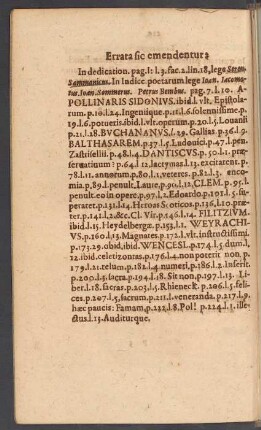 Errata sic emendentur:
In dedication. pag.1. l.3. fac.2. lin.18, lege Seren.
Sarmaticus. In Indice poetarum lege Ioan. Iacomo-
tus. Ioan. Sommerus. Petrus Bembus. pag.7. l.10. A-
POLLINARIS SIDONIVS. ibid. l. vlt. Epistola-
rum. p.10. l.24. Ingeniique. p.11. l.6. solennissime. p.
19. l.6. potueris. ibid. l. vlt. operum. p.20. l.5. Louanii
p.21. l.18. BVCHANANVS. l.29. Gallias p.36. l.9.
BALTHASAREM. p.37. l.5. Ludouici. p.47. l. pen.
Zastrisellii. p.48. l.4. DANTISCVS. p.50. l.1. præ-
seruatium? p.64. l.12. lacrymas l.13. excitarent. p.
78. l.11. annorum. p.80. l.1. veteres. p.82. l.2. enco-
mia. p.89. l. penult. Laure. p.90. l.12. CLEM. p.95. l.
penult. eo in opere. p.97. l.2. Edoardo. p.101. l.5. su-
peraret. p.131. l.14. Heroas Scoticos. p.136. l.10. præ-
ter. p.141. l.2. &c. Cl. Vir. p.146. l.14. FILITZIVM.
ibid. l.15. Heydelbergæ. p.153. l.1. WEYRACHI-
VS. p.160. l.13. Magnates. p.172. l. vlt. instructissimi.
p.173. 29. obid. ibid. WENCESL. p.174. l.5 dum. l.
12. ibid. celetizontas. p.176. l.4. non poterit non. p.
179. l.21. telum. p.182. l.4. numeri. p.186. l.2. Inserit.
p.200. l.5. sacra. p.194. l.18. Sit non. p.197. l.13. Li-
ber. l.18. sacras. p.203. l.5. Rhieneck. p.206. l.5. feli-
ces. p.207. l.5. sacrum. p.211. l. veneranda. p.217. l.9.
hæc paucis: Famam. p.232. l.8. Pol! p.224. l.3. ille-
ctus. l.13. Auditurque.